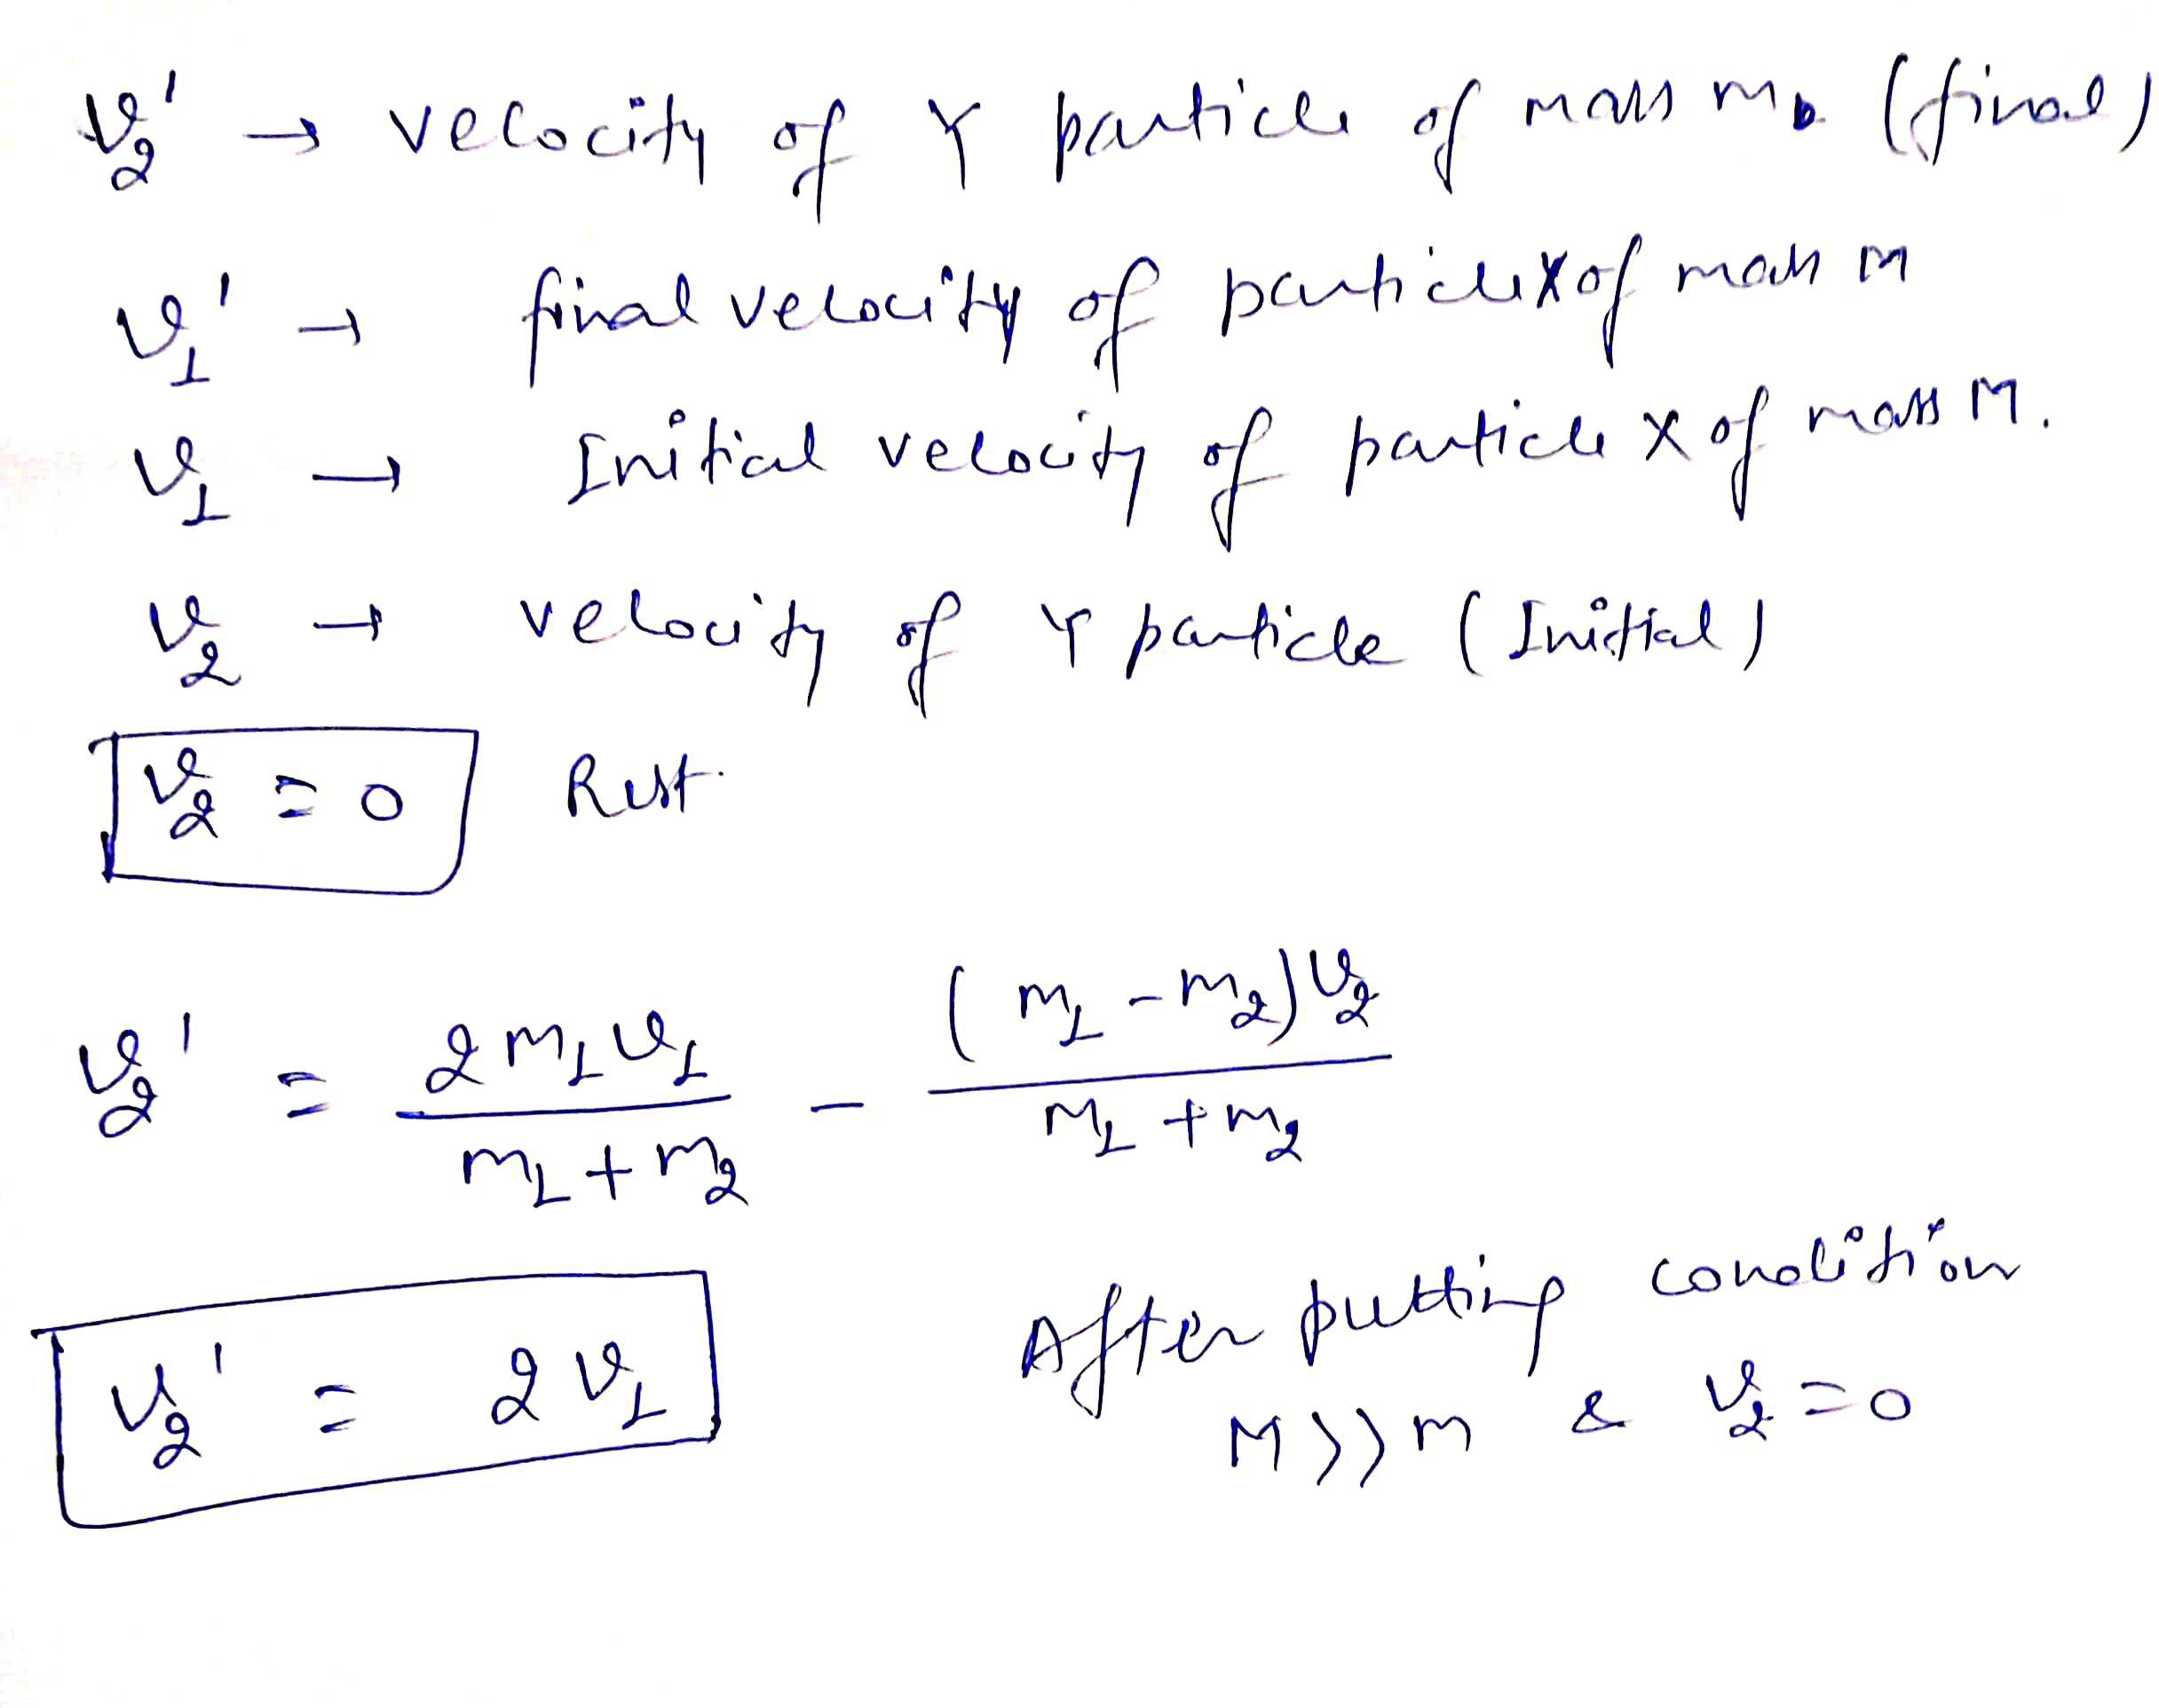 v₂' → velocity of Y particle of mass m. (final)
v₁' → final velocity of particle X of mass M
v₁ → Initial velocity of particle X of mass M.
v₂ → velocity of Y particle (Initial)
v₂ = 0 Rest.
v₂' = 2m₁v₁ / m₁+m₂ - (m₁-m₂)v₂ / m₁+m₂
v₂' = 2v₁ After putting condition
M>>m & v₂=0